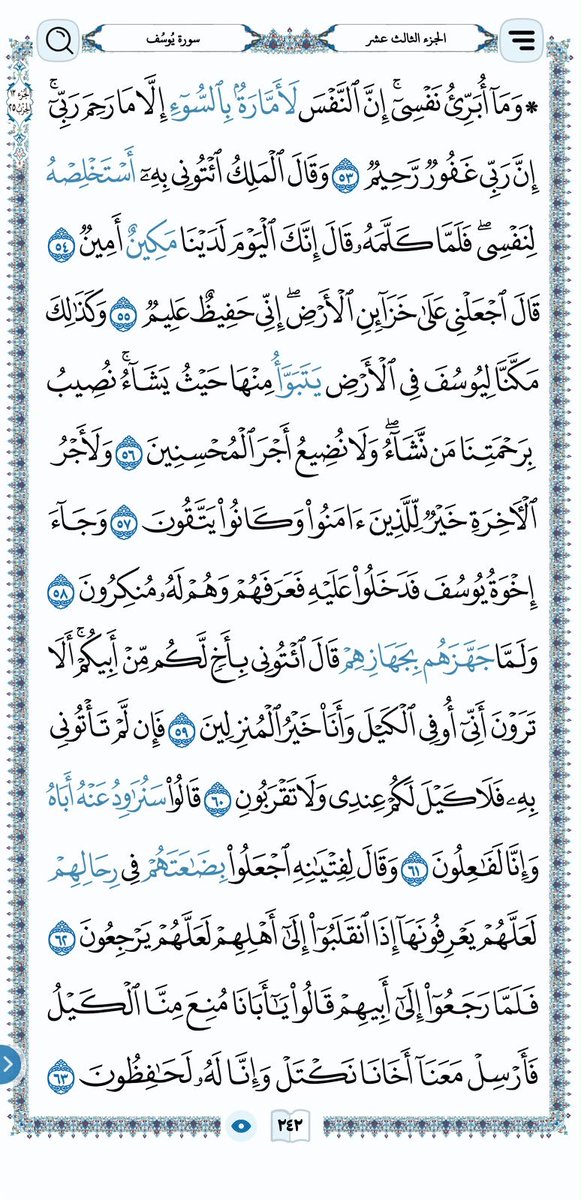 الجزء الثالث عشر
سورة يُوسُف
* وَمَآ أُبَرِّئُ نَفۡسِيٓۚ إِنَّ ٱلنَّفۡسَ لَأَمَّارَةُۢ بِٱلسُّوٓءِ إِلَّا مَا رَحِمَ رَبِّيٓۚ
إِنَّ رَبِّي غَفُورٞ رَّحِيمٞ ٥٣ وَقَالَ ٱلۡمَلِكُ ٱئۡتُونِي بِهِۦٓ أَسۡتَخۡلِصۡهُ
لِنَفۡسِيۖ فَلَمَّا كَلَّمَهُۥ قَالَ إِنَّكَ ٱلۡيَوۡمَ لَدَيۡنَا مَكِينٌ أَمِينٞ ٥٤
قَالَ ٱجۡعَلۡنِي عَلَىٰ خَزَآئِنِ ٱلۡأَرۡضِۖ إِنِّي حَفِيظٌ عَلِيمٞ ٥٥ وَكَذَٰلِكَ
مَكَّنَّا لِيُوسُفَ فِي ٱلۡأَرۡضِ يَتَبَوَّأُ مِنۡهَا حَيۡثُ يَشَآءُۚ نُصِيبُ
بِرَحۡمَتِنَا مَن نَّشَآءُۖ وَلَا نُضِيعُ أَجۡرَ ٱلۡمُحۡسِنِينَ ٥٦ وَلَأَجۡرُ
ٱلۡأٓخِرَةِ خَيۡرٞ لِّلَّذِينَ ءَامَنُواْ وَكَانُواْ يَتَّقُونَ ٥٧ وَجَآءَ
إِخۡوَةُ يُوسُفَ فَدَخَلُواْ عَلَيۡهِ فَعَرَفَهُمۡ وَهُمۡ لَهُۥ مُنكِرُونَ ٥٨
وَلَمَّا جَهَّزَهُم بِجَهَازِهِمۡ قَالَ ٱئۡتُونِي بِأَخٖ لَّكُم مِّنۡ أَبِيكُمۡۚ أَلَا
تَرَوۡنَ أَنِّيٓ أُوفِي ٱلۡكَيۡلَ وَأَنَا۠ خَيۡرُ ٱلۡمُنزِلِينَ ٥٩ فَإِن لَّمۡ تَأۡتُونِي
بِهِۦ فَلَا كَيۡلَ لَكُمۡ عِندِي وَلَا تَقۡرَبُونِ ٦٠ قَالُواْ سَنُرَٰوِدُ عَنۡهُ أَبَاهُ
وَإِنَّا لَفَٰعِلُونَ ٦١ وَقَالَ لِفِتۡيَٰنِهِ ٱجۡعَلُواْ بِضَٰعَتَهُمۡ فِي رِحَالِهِمۡ
لَعَلَّهُمۡ يَعۡرِفُونَهَآ إِذَا ٱنقَلَبُوٓاْ إِلَىٰٓ أَهۡلِهِمۡ لَعَلَّهُمۡ يَرۡجِعُونَ ٦٢
فَلَمَّا رَجَعُوٓاْ إِلَىٰٓ أَبِيهِمۡ قَالُواْ يَٰٓأَبَانَا مُنِعَ مِنَّا ٱلۡكَيۡلُ
فَأَرۡسِلۡ مَعَنَآ أَخَانَا نَكۡتَلۡ وَإِنَّا لَهُۥ لَحَٰفِظُونَ ٦٣
٢٤٢